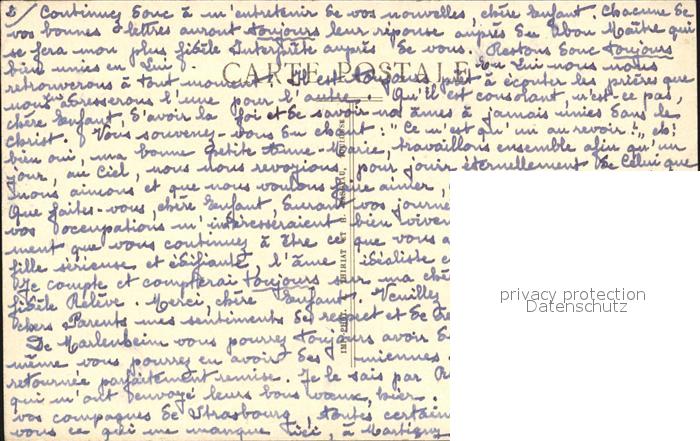 2/ Continuez donc à m'entretenir de vos nouvelles, chère Enfant. Chacune de
vos bonnes lettres auront toujours leur réponse auprès du bon Maître qui
se fera mon plus fidèle Interprète auprès de vous. Restons donc toujours
bien unies en Lui. En Lui nous nous
CARTE POSTALE
retrouverons à tout moment. Il est toujours prêt à écouter les prières que
nous adresserons l'une pour l'autre. Qu'il est consolant, n'est-ce pas,
chère Enfant, d'avoir la foi et de savoir nos âmes à jamais unies dans le
Christ. Vous souvenez-vous du chant: "Ce n'est qu'un au revoir!", eh!
bien oui, ma bonne petite Anne-Marie, travaillons ensemble afin qu'un
jour, au Ciel, nous nous revoyions pour jouir éternellement de Celui que
nous aimons et que nous voulons faire aimer,
Que faites-vous, chère Enfant, durant vos journé
vos occupations m'intéresseraient bien vivem
ment que vous continuez à être ce que vous a
fille sérieuse et édifiante, l'âme idéaliste e
Je compte et compterai toujours sur ma chè
fidèle Relève. Merci, chère Enfant. Veuillez
chers Parents mes sentiments de respect et de
De Marlenheim vous pourrez toujours avoir d
même vous pourrez en avoir des miennes.
retournée parfaitement remise. Je le sais par
qui m'ont envoyé leurs bons vœux, hier.
vos compagnes de Strasbourg, toutes certain
vous ce qui me manque ici, à Martigny
privacy protection
Datenschutz